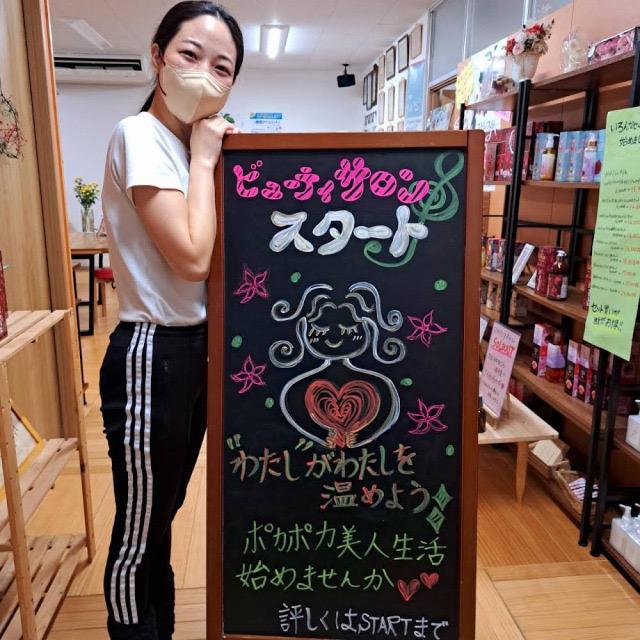 ビューティサロン
スタート
"わたし"がわたしを
温めよう
ポカポカ美人生活
始めませんか
詳しくはSTARTまで